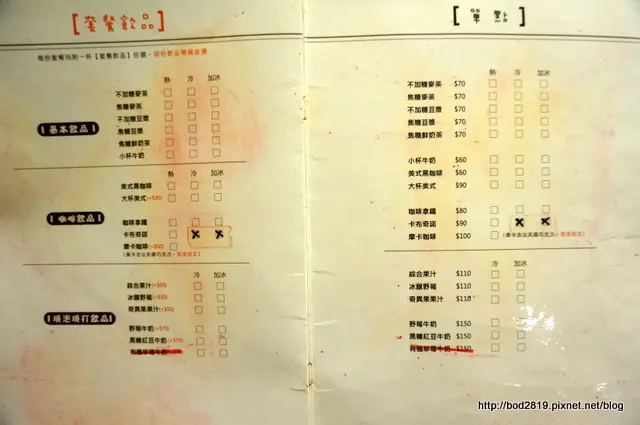 [套餐飲品]
每份套餐均附一杯【套餐飲品】任選，
熱 冷 加冰
不加糖麥茶
焦糖麥茶
不加糖豆漿
焦糖豆漿
焦糖鮮奶茶
小杯牛奶
基本飲品
熱 冷 加冰
美式黑咖啡
大杯美式(+$30)
咖啡拿鐵
卡布奇諾
摩卡咖啡(+$50)
咖啡飲品
冷 加冰
綜合果汁(+$50)
冰釀野莓(+$50)
奇異果果汁(+$50)
野莓牛奶(+$70)
黑糖紅豆牛奶(+$70)
現泡現打飲品
[單點]
熱 冷 加冰
不加糖麥茶 $70
焦糖麥茶 $70
不加糖豆漿 $70
焦糖豆漿 $70
焦糖鮮奶茶 $70
小杯牛奶 $60
美式黑咖啡 $60
大杯美式 $90
咖啡拿鐵 $80
卡布奇諾 $90
摩卡咖啡 $100
冷 加冰
綜合果汁 $110
冰釀野莓 $110
奇異果果汁 $110
野莓牛奶 $150
黑糖紅豆牛奶 $150
有機草莓牛奶 $150
http://bod2819.pixnet.net/blog